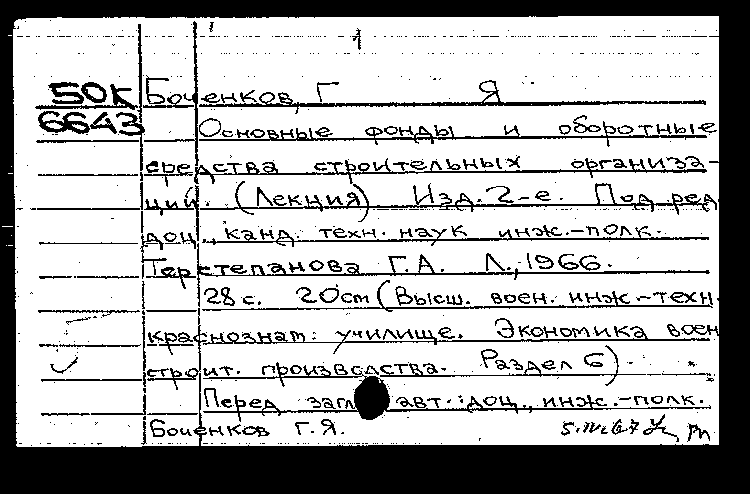 1
50К Боченков, Г Я
6643 Основные фонды и оборотные
средства строительных организа-
ций. (Лекция) Изд. 2-е. Под ред
доц., канд. техн. наук инж.-полк.
Терстепанова Г.А. Л., 1966.
28 с. 20cm (Высш. воен. инж.-техн.
краснознам: училище. Экономика воен
строит. производства. Раздел 6).
Перед загл авт.: доц., инж.-полк.
Боченков Г.Я. 5.IV.67